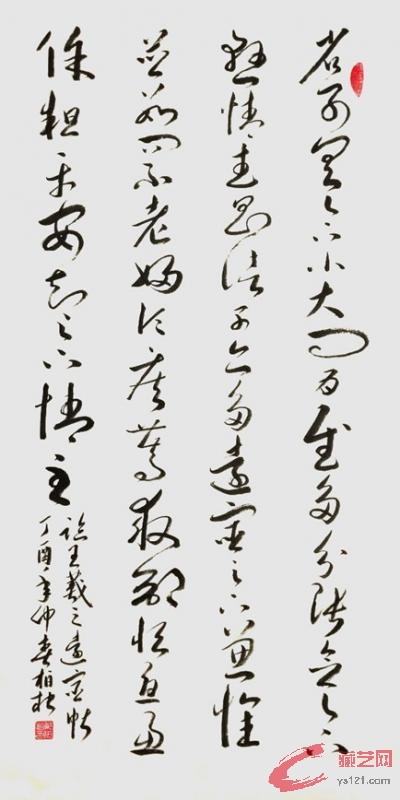 省別具足下小大問為慰多分張念足下
懸情武昌諸子亦多遠宦足下兼懷
並數問不老婦頃疾篤救命恒憂慮
餘粗平安知足下情至
臨王羲之遠宦帖
丁酉年仲春柏
藏艺网
ys121.com